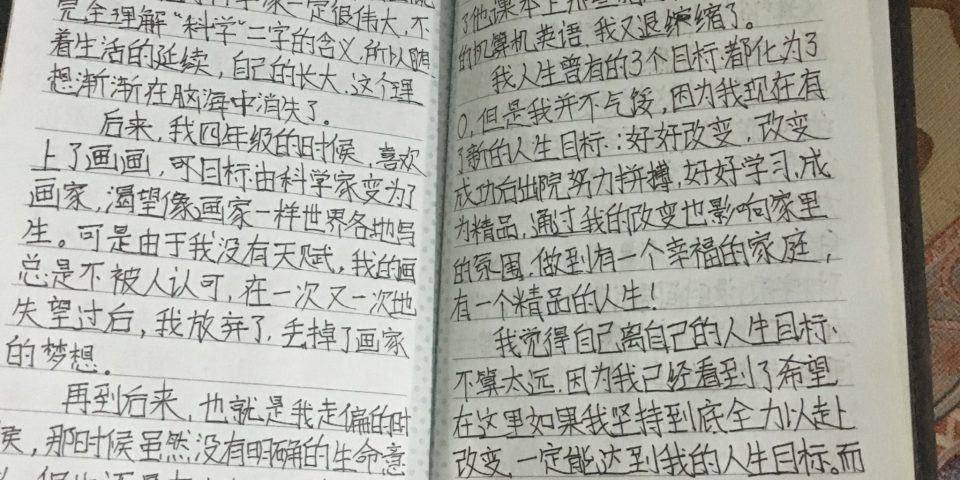 完全理解“科学”二字的含义,所以随
着生活的延续,自己的长大,这个理
想渐渐在脑海中消失了。
后来,我四年级的时候,喜欢
上了画画,可目标由科学家变为了
画家,渴望像画家一样世界各地写
生。可是由于我没有天赋,我的画
总是不被人认可,在一次又一次地
失望过后,我放弃了,丢掉了画家
的梦想.
再到后来,也就是我走偏的时
候,那时候虽然没有明确的生命意
了他课本上
的机算机英语,我又退缩缩了。
我人生曾有的3个目标,都化为了
0,但是我并不气馁,因为我现在有
了新的人生目标:好好改变,改变
成功后出院努力拼搏,好好学习,成
为精品,通过我的改变也影响家里
的氛围,做到有一个幸福的家庭,
有一个精品的人生!
我觉得自己离自己的人生目标,
不算太远,因为我已经看到了希望
在这里如果我坚持到底全力以赴
改变,一定能达到我的人生目标。而